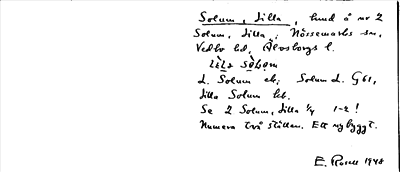 Solum, Lilla, hmd å nr 2
Solum, Lilla; Nössemarks sn,
Vedbo hd, Älvsborgs l.
lìla sòlọm
d. Solum ek; Solum d. G61,
Lilla Solum kb.
Se 2 Solum, Lilla 1/4 1-2!
Numera två ställen. Ett nybyggt.
E. Rosell 1948